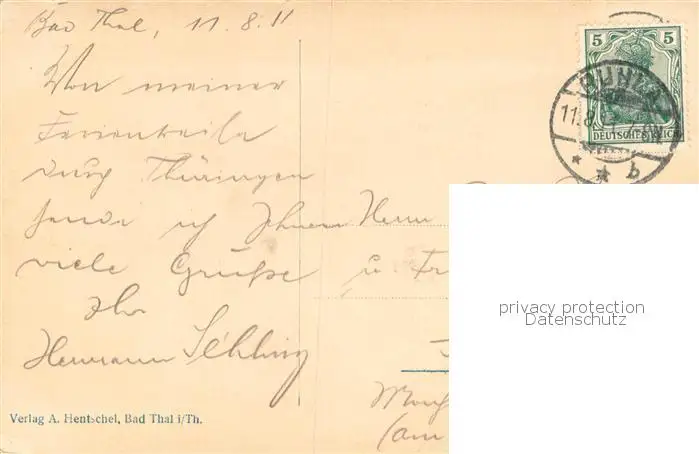 Bad Thal, 11.8.11
Von meiner
Ferienreise
durch Thüringen
sende ich Ihnen
viele Grüße
Ihr
Hermann Sehling
Herrn
u Fr
(am
5 5
DEUTSCHES REICH
RUHLA
11.8.11
* * b
privacy protection
Datenschutz
Verlag A. Hentschel, Bad Thal i/Th.